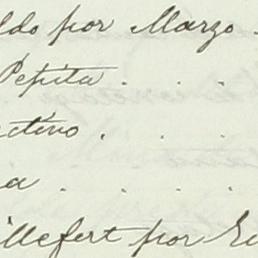 ldo por Marzo .
Pepita . . .
ctino . . .
a . . . .
illefert por En